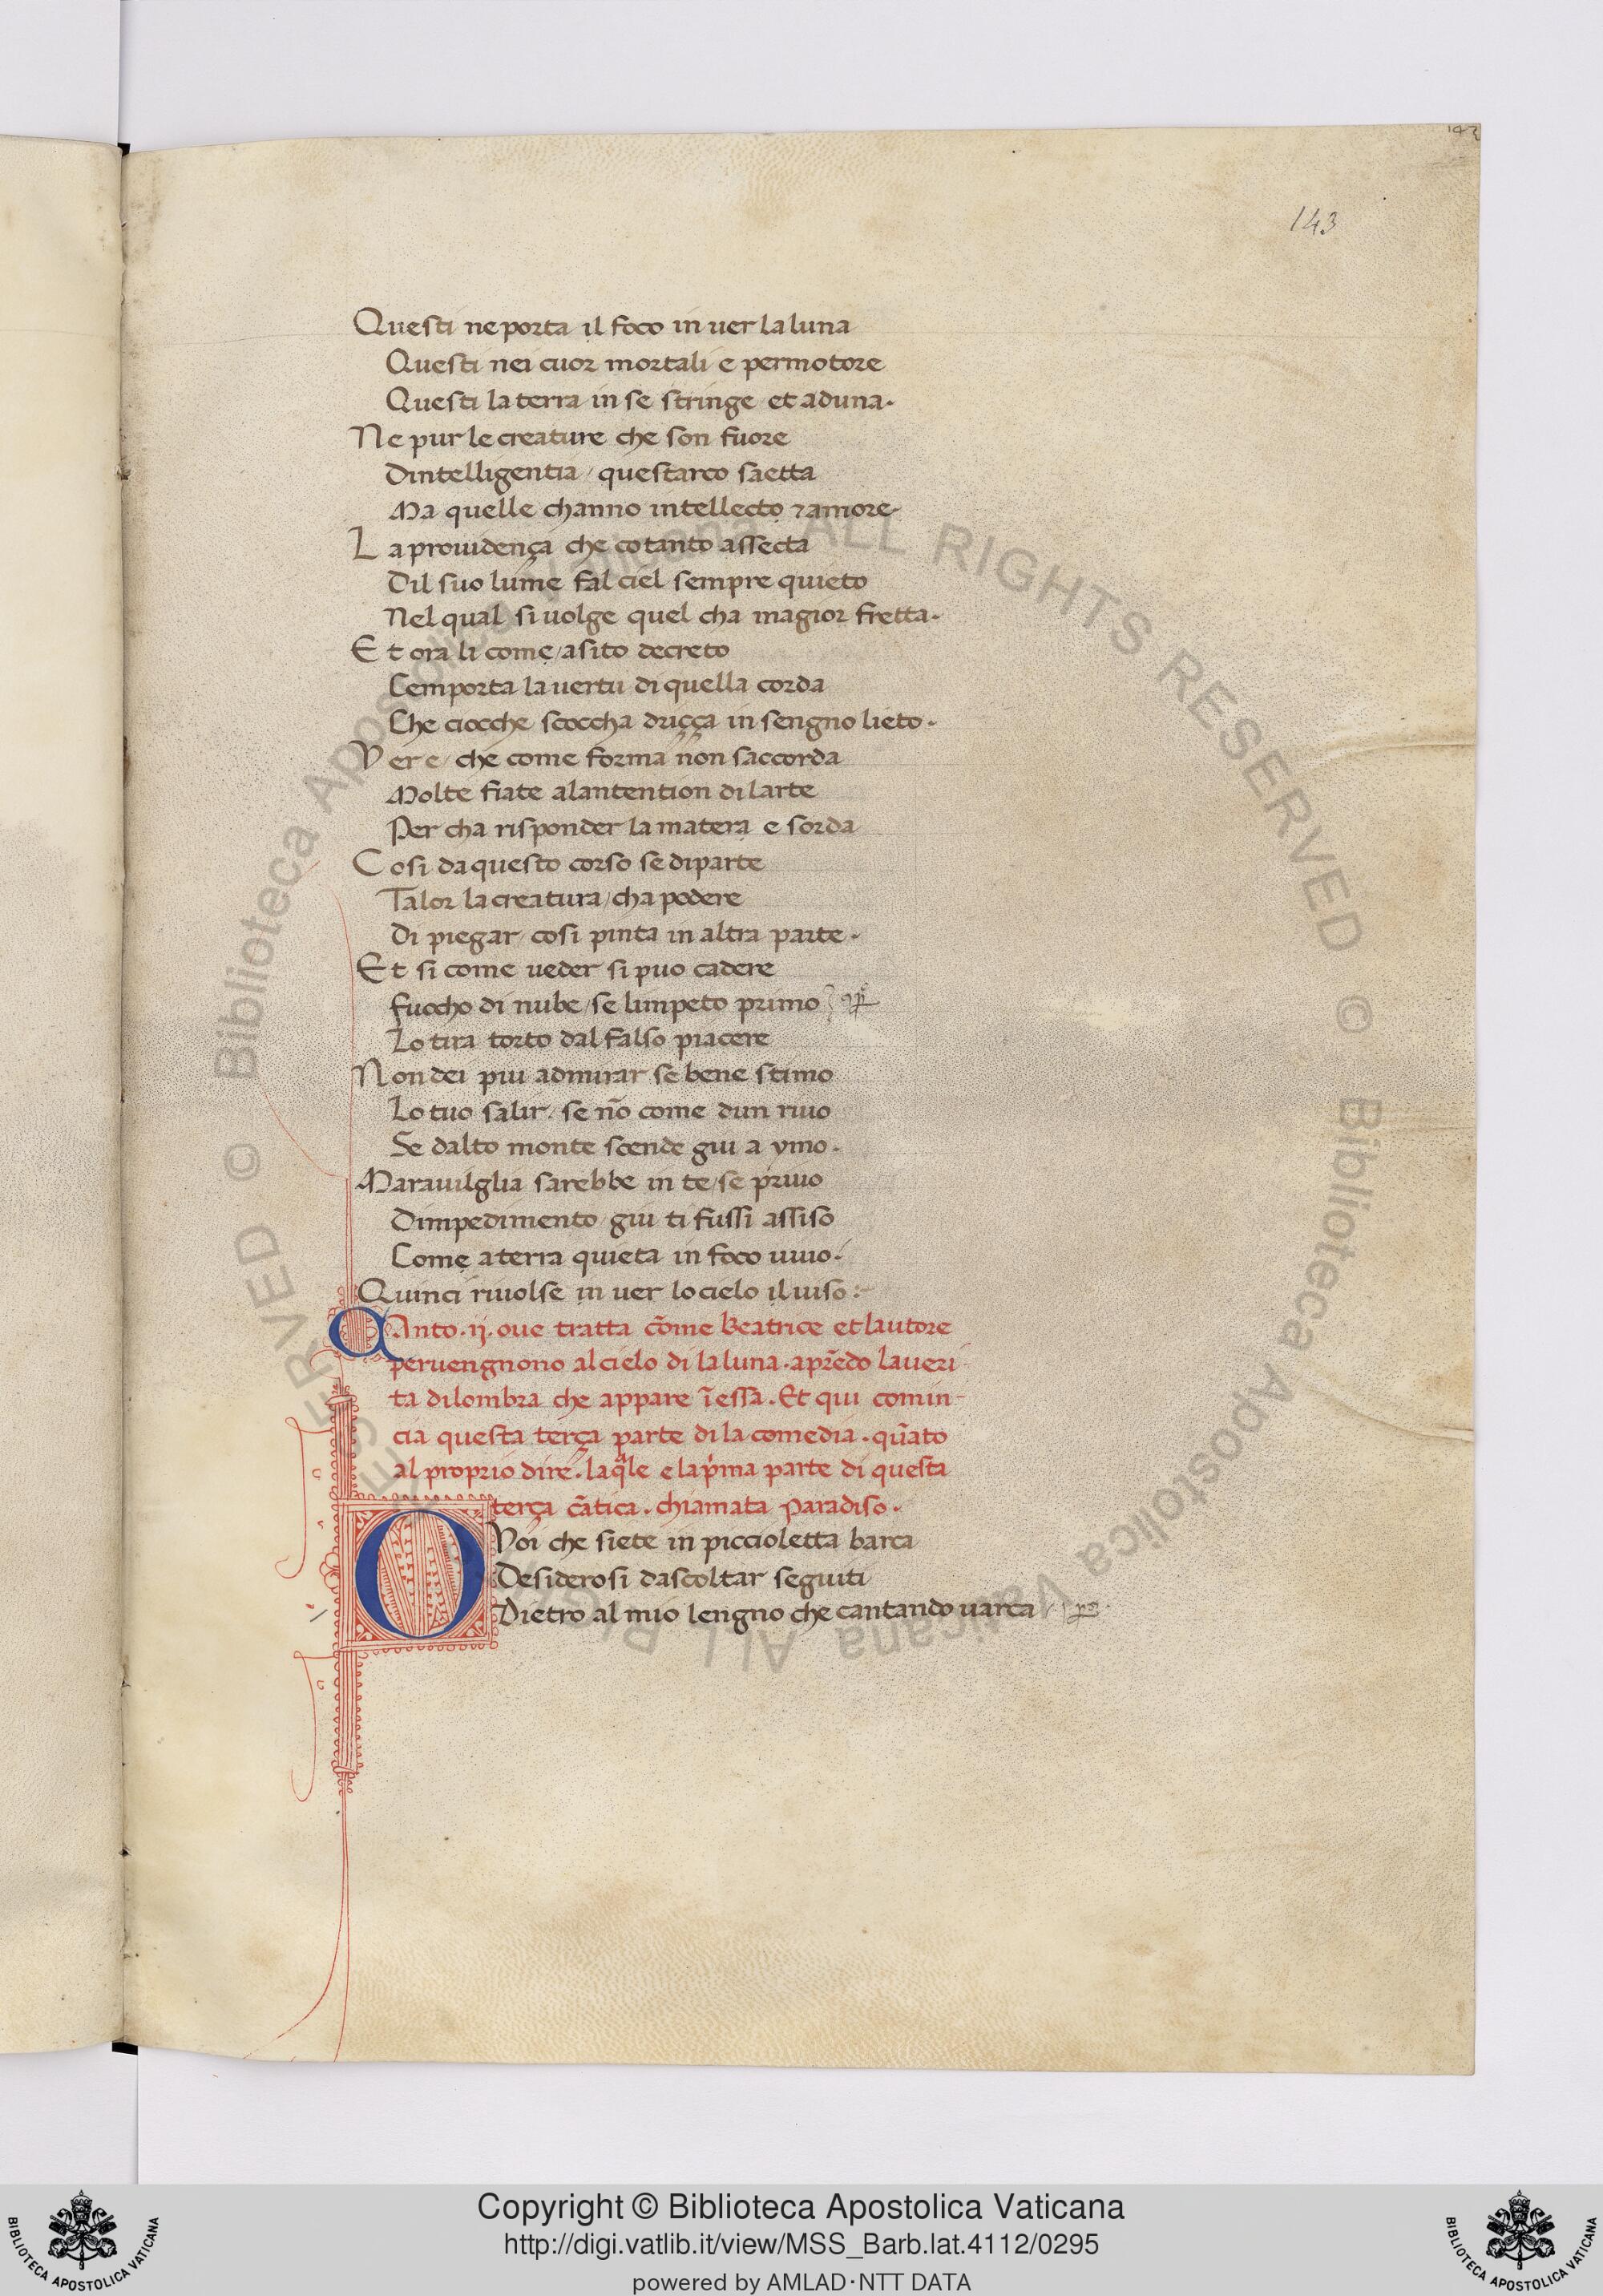 143
143
Questi ne porta il foco in uer la luna
Questi nei cuor mortali e permotore
Questi la terra in se stringe et aduna.
Ne pur le creature che son fuore
Dintelligentia / questarco saetta
Ma quelle channo intellecto ⁊ amore.
La prouidença che cotanto assecta
Dil suo lume fal ciel sempre quieto
Nel qual si uolge quel cha magior fretta.
Et ora li come / a sito decreto
Cemporta la uertu di quella corda
Che ciocche scoccha driçça in sengno lieto.
Ver e / che come forma non saccorda
Molte fiate alantention di larte
Per cha risponder la matera e sorda
Cosi da questo corso se diparte
Talor la creatura / cha podere
Di piegar / cosi pinta in altra parte.
Et si come ueder si puo cadere
fuocho di nube / se limpeto primo
Lo tira torto dal falso piacere
Non dei piu admirar se bene stimo
Lo tuo salir / se nō come dun riuo
Se dalto monte scende giu a ymo.
Marauilglia sarebbe in te / se priuo
Dimpedimento / giu ti fussi assiso
Come a terra quieta in foco uiuo.
Quinci riuolse in uer lo cielo il uiso:
CAnto .ij. oue tratta cōme Beatrice et lautore
peruengnono al cielo di la luna . apr̄edo la ueri
ta di lombra che appare ī essa . Et qui comin-
cia questa terça parte di la comedia . qūato
al proprio dire . laq̄le e la pͥma parte di questa
terça cātica . chiamata paradiso.
O Voi che siete in piccioletta barca
Desiderosi dascoltar seguiti
Dietro al mio lengno che cantando uarca
© Biblioteca Apostolica Vaticana ALL RIGHTS RESERVED
© Biblioteca Apostolica Vaticana ALL RIGHTS RESERVED
Copyright © Biblioteca Apostolica Vaticana
http://digi.vatlib.it/view/MSS_Barb.lat.4112/0295
powered by AMLAD·NTT DATA
BIBLIOTECA APOSTOLICA VATICANA
BIBLIOTECA APOSTOLICA VATICANA